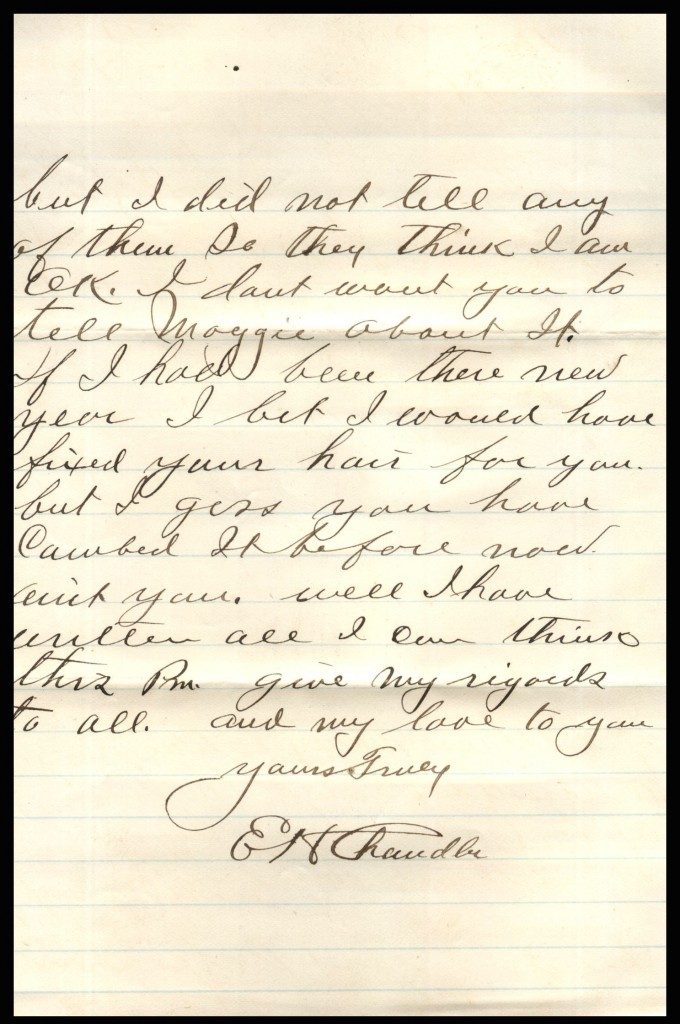 but I did not tell any
of them So they think I am
OK. I dant want you to
tell Maggie about It.
If I had been there new
year I bet I would have
fixed your hair for you.
but I gess you have
Cambed It before now.
aint you. well I have
written all I can think
this Pm. give my rigards
to all. and my love to you
yours Truey
E H Chandler